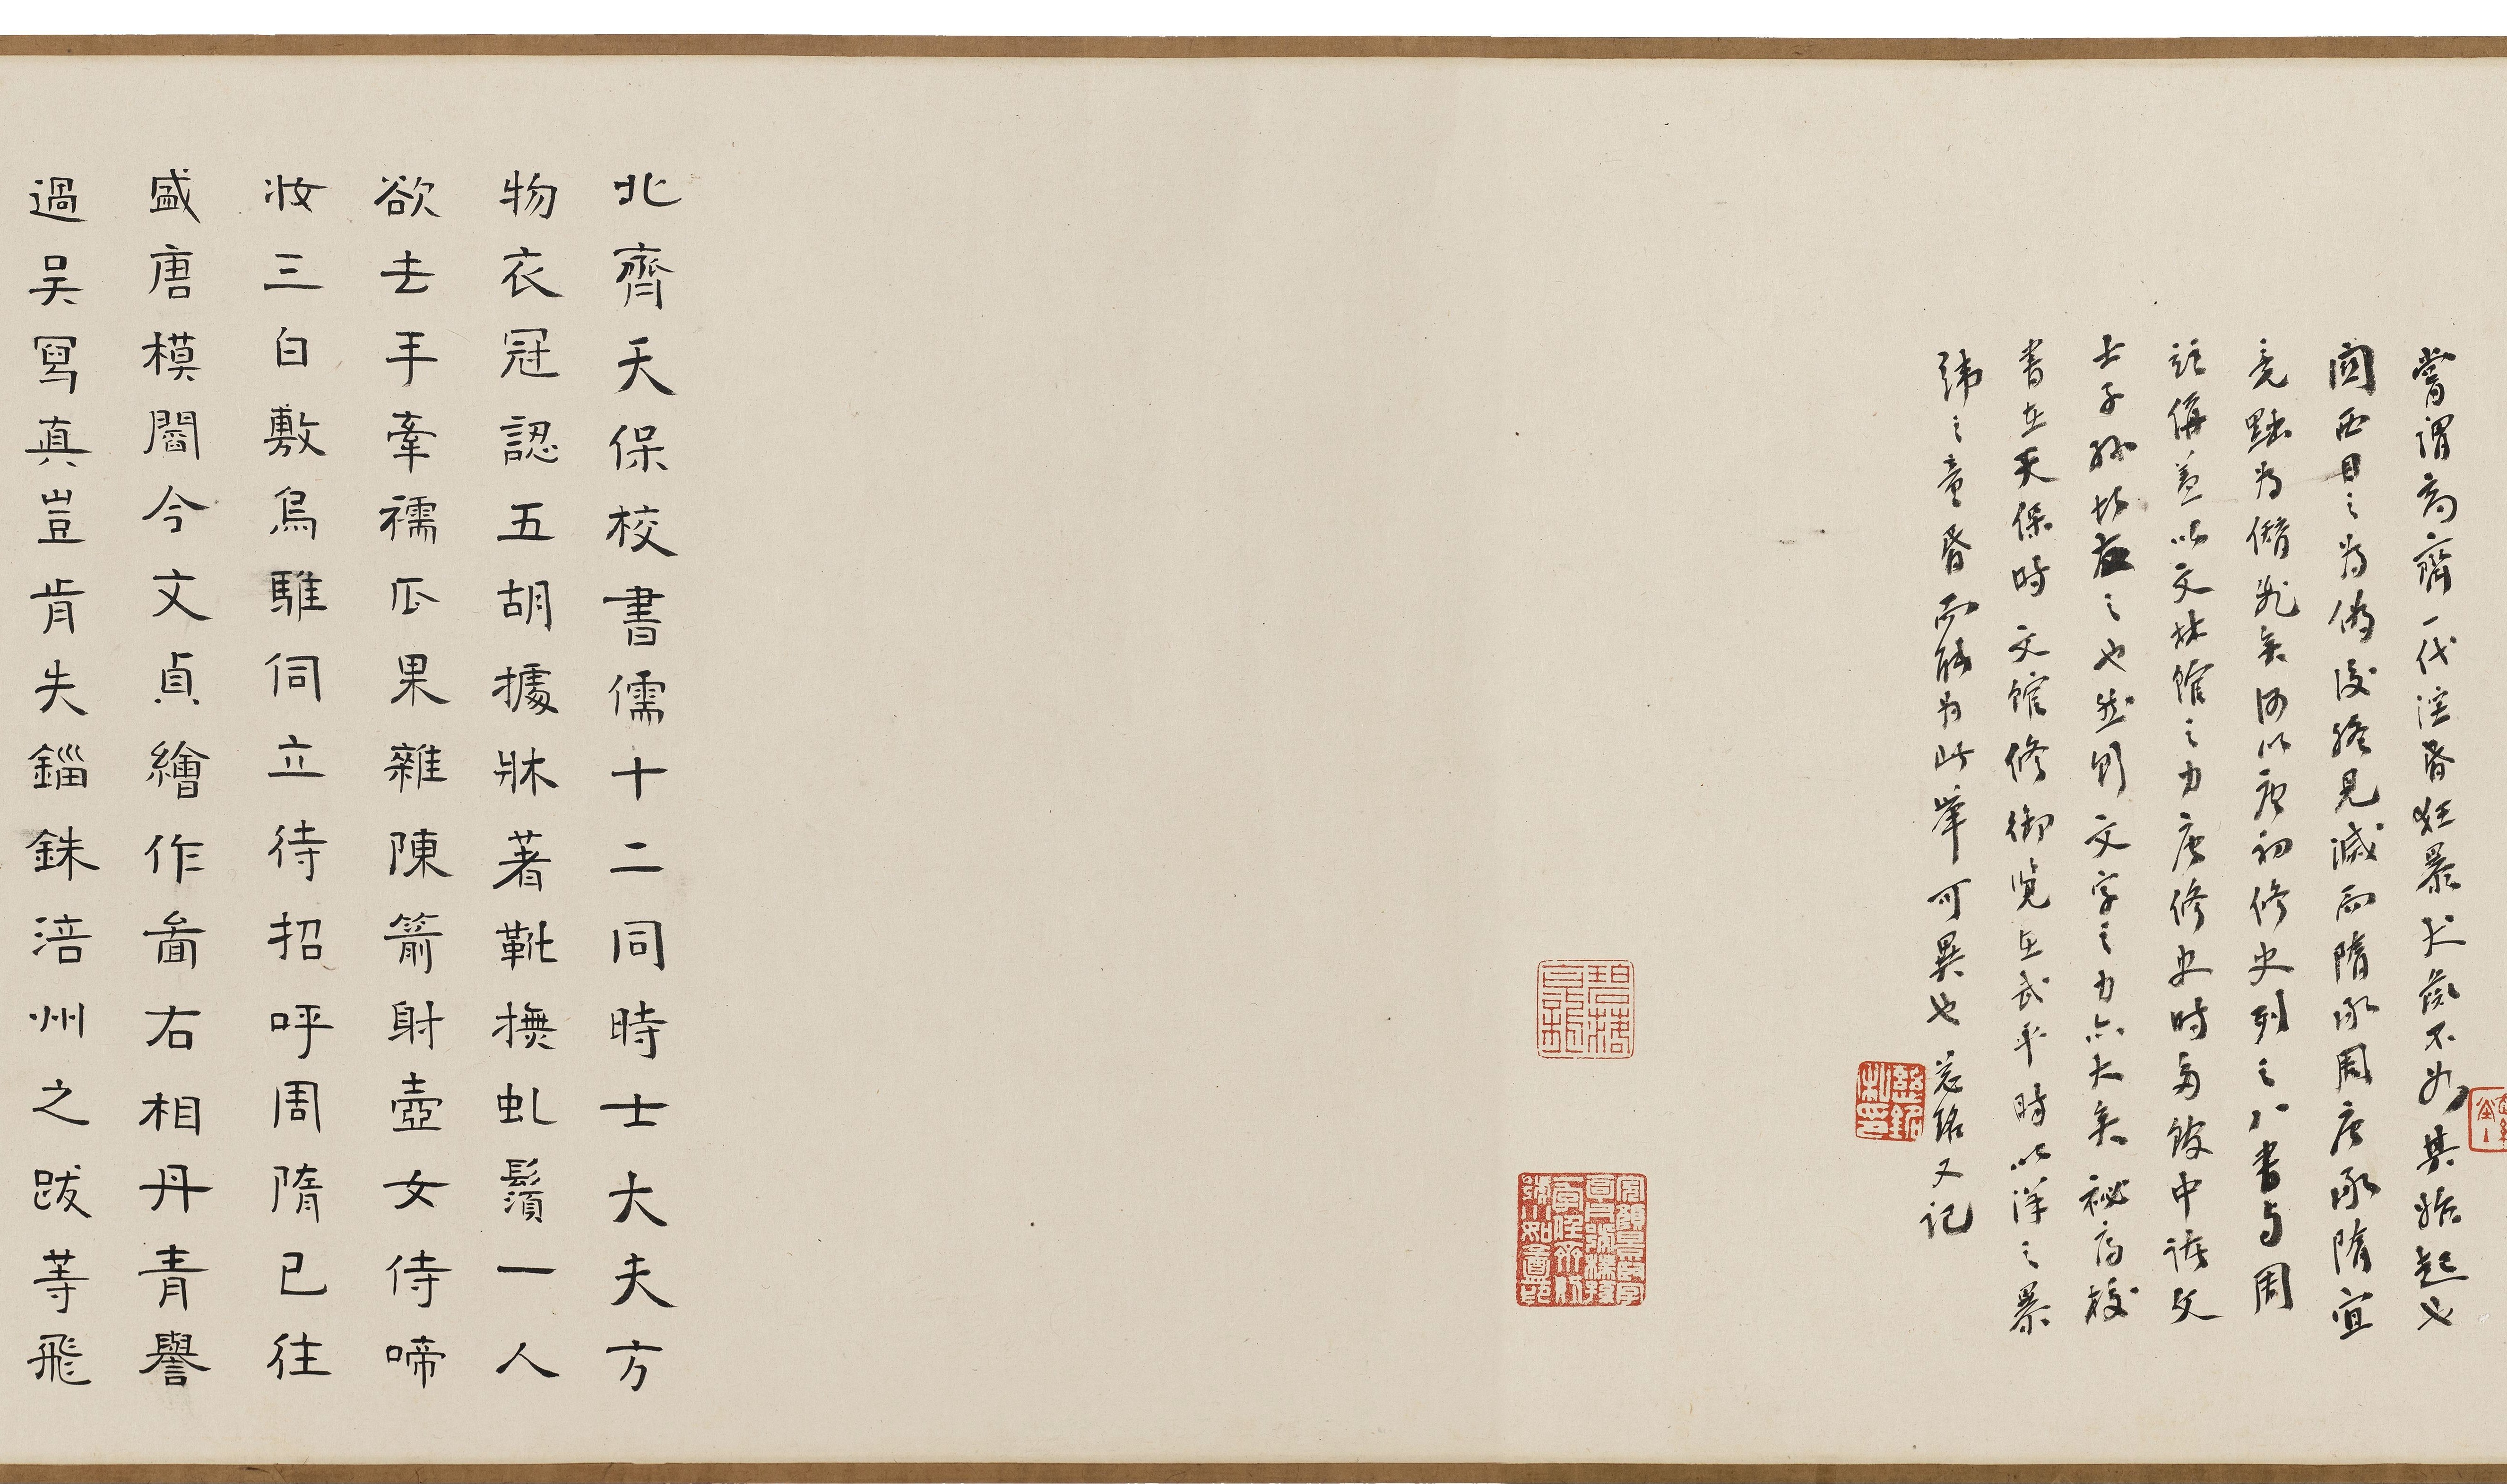 嘗謂高齊一代淫昏狂暴犬彘不如其始起也
関西目之為偽後終見滅而隋承周唐承隋宜
竟黜為僭亂矣何以唐初修史列之八書与周
竝偁盖以文林館之力唐修史時多館中諸文
士子孫故左之也然則文字之力亦大矣祕府校
書在天保時文館修御覽在武平時以洋之暴
緯之童昏而能為此舉可異也 慈銘又記
北齊天保校書儒十二同時士大夫方
物衣冠認五胡據牀著靴撫虬鬚一人
欲去手牽襦瓜果雜陳箭射壺女侍啼
妝三白敷烏騅伺立待招呼周隋已往
盛唐模閻令文貞繪作啚右相丹青譽
過吴寫真豈肯失錙銖涪州之跋等飛